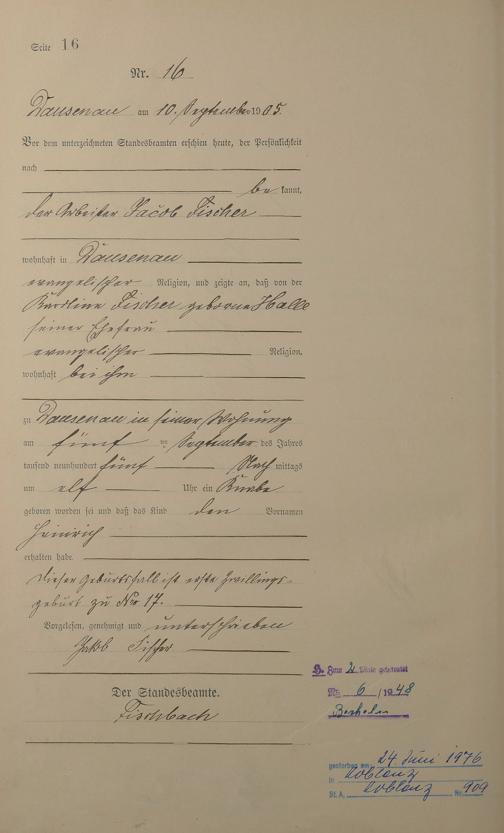 Seite 16
Nr. 16
Dausenau am 10. September 1905.
Vor dem unterzeichneten Standesbeamten erschien heute, der Persönlichkeit
nach
be kannt,
der Arbeiter Jacob Fischer
wohnhaft in Dausenau
evangelischer Religion, und zeigte an, daß von der
Karoline Fischer geborne Halle
seiner Ehefrau
evangelischer Religion,
wohnhaft bei ihm
zu Dausenau in seiner Wohnung
am fünf ten September des Jahres
tausend neunhundert fünf Nach mittags
um elf Uhr ein Knabe
geboren worden sei und daß das Kind den Vornamen
Heinrich
erhalten habe.
Dieser Geburtsfall ist erste Zwillings-
geburt zu Nro 17.
Vorgelesen, genehmigt und unterschrieben
Jakob Fischer
Der Standesbeamte.
Fischbach
Zum 2 Male geheiratet
Nr. 6/1948
gestorben am 24 Juni 1976
in Koblenz
St. A. Koblenz Nr. 909